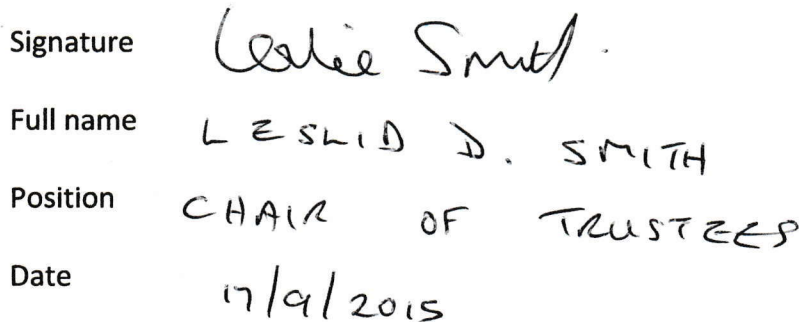 Signature Leslie Smith.
Full name LESLIE D. SMITH
Position CHAIR OF TRUSTEES
Date 17/9/2015